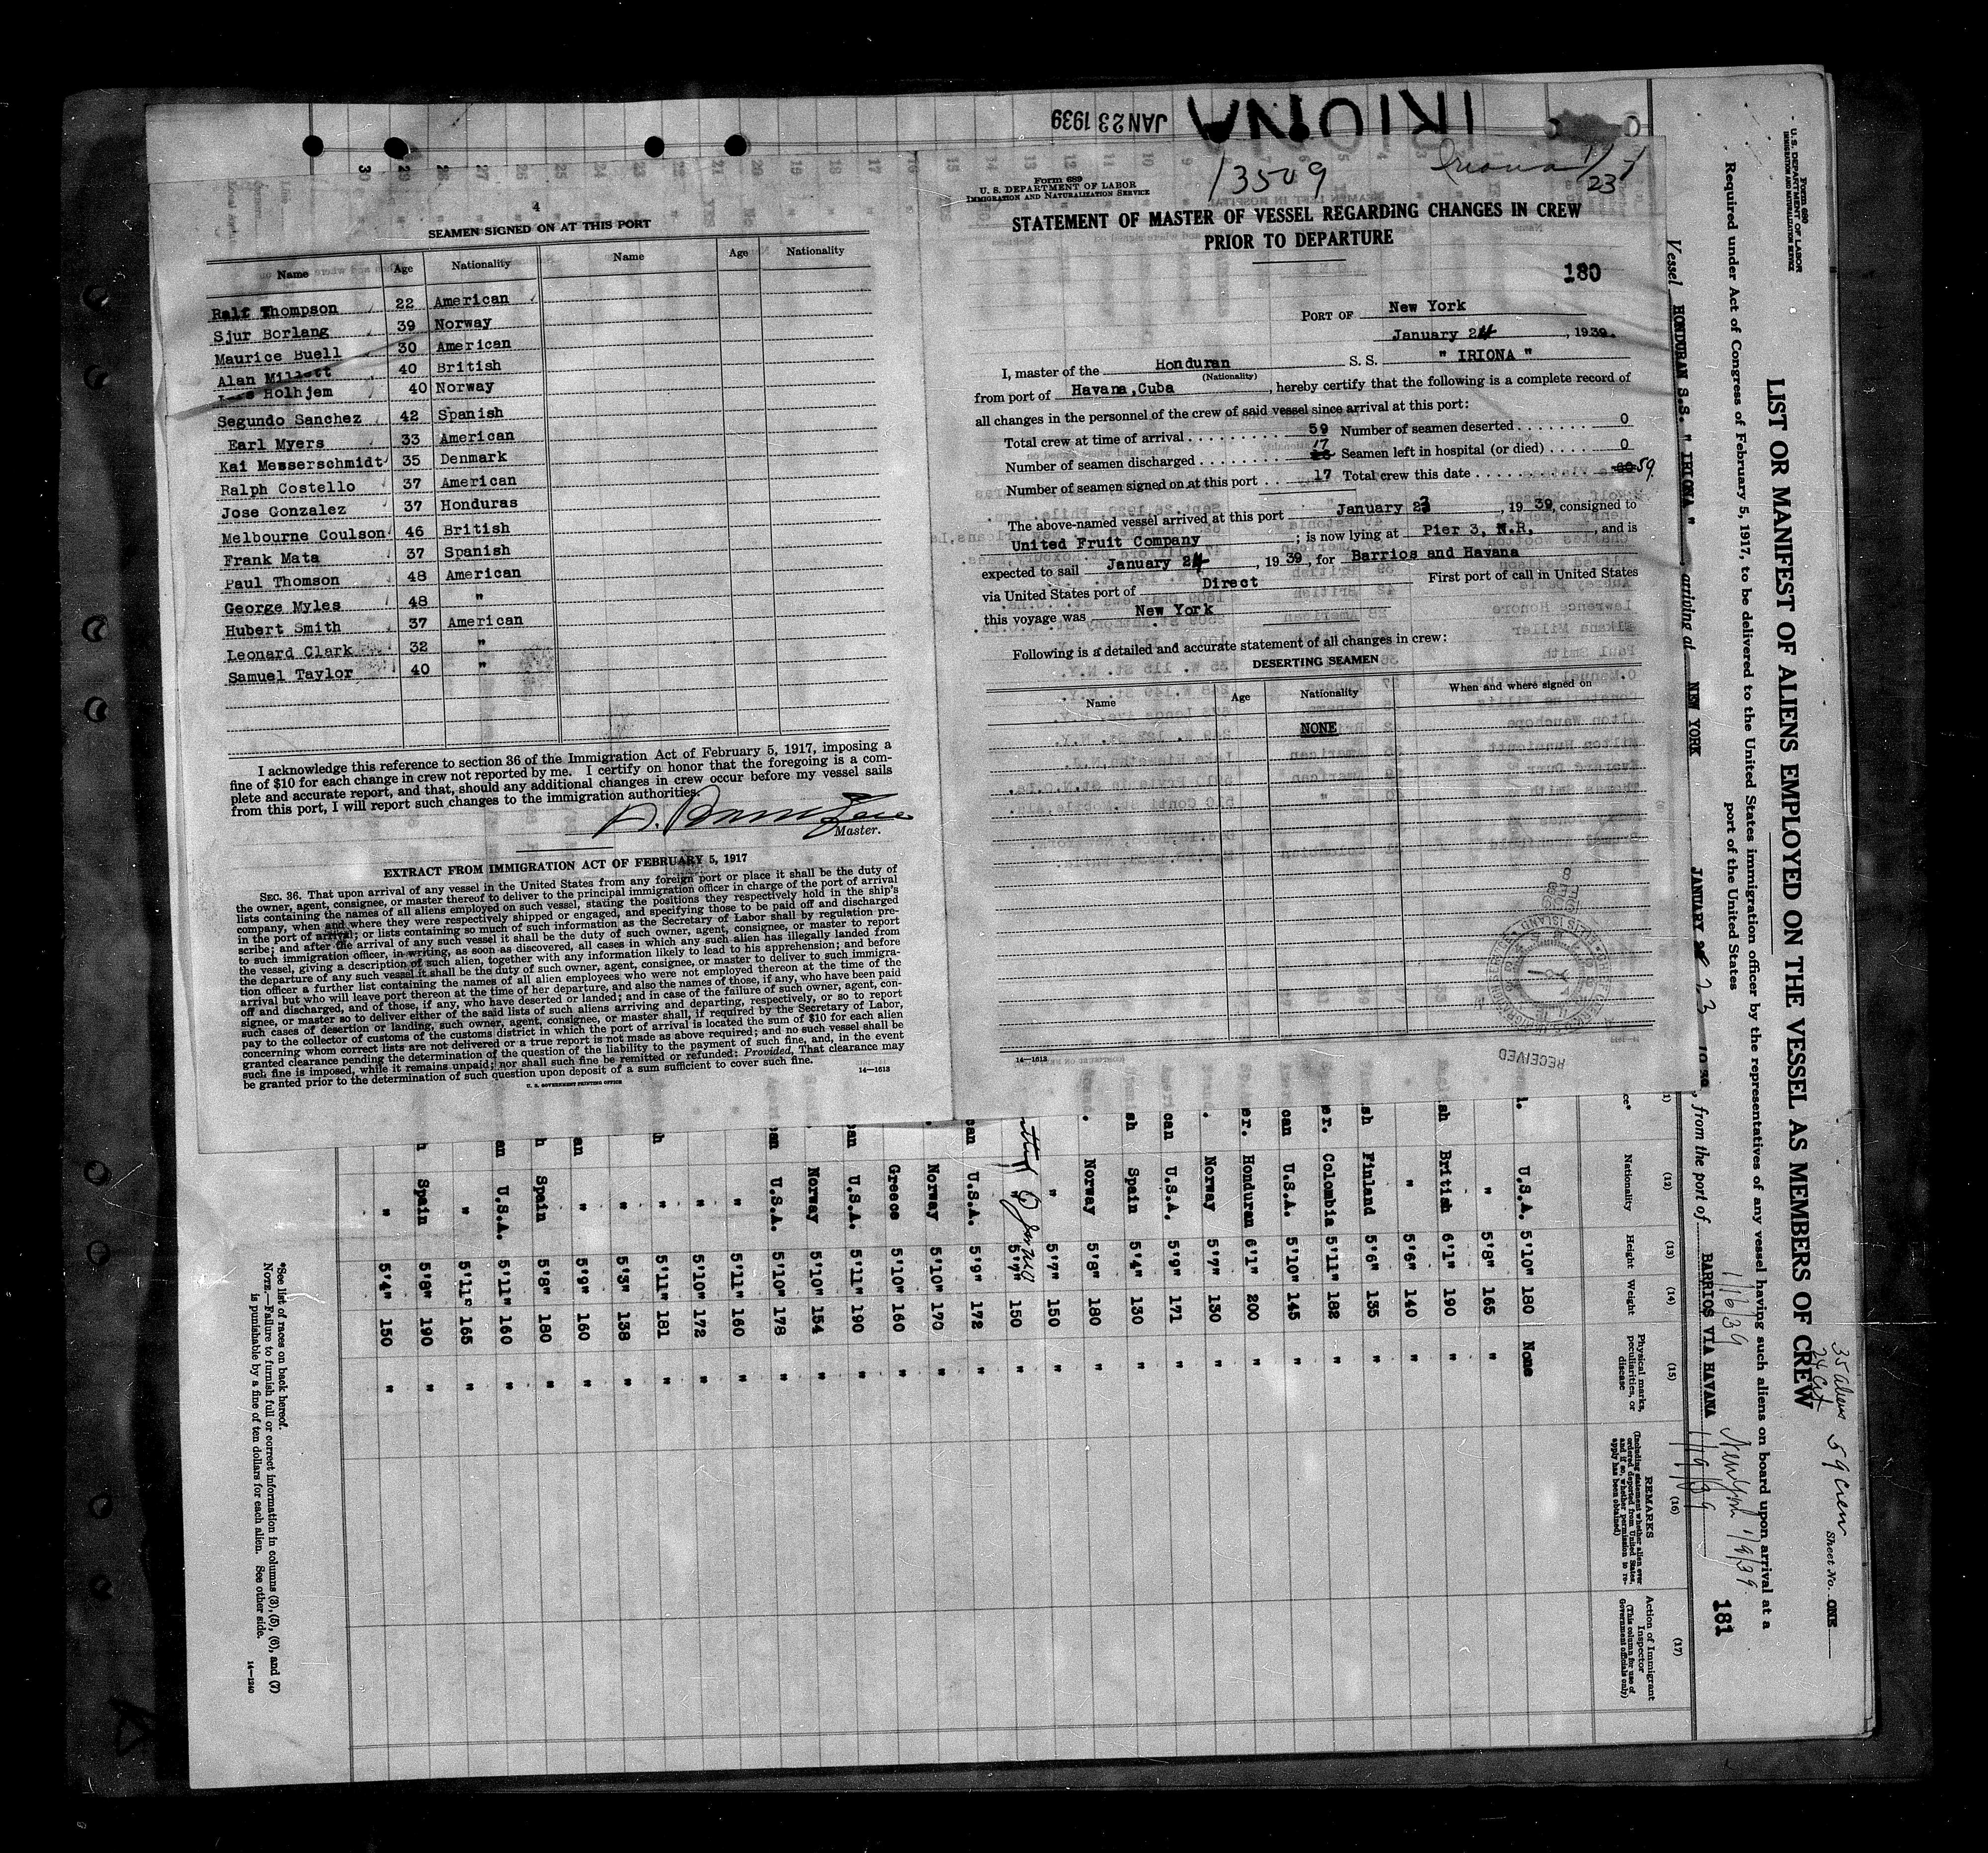 IRIONA
JAN 23 1939
4
SEAMEN SIGNED ON AT THIS PORT
Name Age Nationality Name Age Nationality
Ralf Thompson 22 American
Sjur Borlang 39 Norway
Maurice Buell 30 American
Alan Millett 40 British
Holhjem 40 Norway
Segundo Sanchez 42 Spanish
Earl Myers 33 American
Kai Messerschmidt 35 Denmark
Ralph Costello 37 American
Jose Gonzalez 37 Honduras
Melbourne Coulson 46 British
Frank Mata 37 Spanish
Paul Thomson 48 American
George Myles 48 "
Hubert Smith 37 American
Leonard Clark 32 "
Samuel Taylor 40 "
I acknowledge this reference to section 36 of the Immigration Act of February 5, 1917, imposing a
fine of $10 for each change in crew not reported by me. I certify on honor that the foregoing is a com-
plete and accurate report, and that, should any additional changes in crew occur before my vessel sails
from this port, I will report such changes to the immigration authorities.
Master.
EXTRACT FROM IMMIGRATION ACT OF FEBRUARY 5, 1917
SEC. 36. That upon arrival of any vessel in the United States from any foreign port or place it shall be the duty of
the owner, agent, consignee, or master thereof to deliver to the principal immigration officer in charge of the port of arrival
lists containing the names of all aliens employed on such vessel, stating the positions they respectively hold in the ship's
company, when and where they were respectively shipped or engaged, and specifying those to be paid off and discharged
in the port of arrival; or lists containing so much of such information as the Secretary of Labor shall by regulation pre-
scribe; and after the arrival of any such vessel it shall be the duty of such owner, agent, consignee, or master to report
to such immigration officer, in writing, as soon as discovered, all cases in which any such alien has illegally landed from
the vessel, giving a description of such alien, together with any information likely to lead to his apprehension; and before
the departure of any such vessel it shall be the duty of such owner, agent, consignee, or master to deliver to such immigra-
tion officer a further list containing the names of all alien employees who were not employed thereon at the time of the
arrival but who will leave port thereon at the time of her departure, and also the names of those, if any, who have been paid
off and discharged, and of those, if any, who have deserted or landed; and in case of the failure of such owner, agent, con-
signee, or master so to deliver either of the said lists of such aliens arriving and departing, respectively, or so to report
such cases of desertion or landing, such owner, agent, consignee, or master shall, if required by the Secretary of Labor,
pay to the collector of customs of the customs district in which the port of arrival is located the sum of $10 for each alien
concerning whom correct lists are not delivered or a true report is not made as above required; and no such vessel shall be
granted clearance pending the determination of the question of the liability to the payment of such fine, and, in the event
such fine is imposed, while it remains unpaid; nor shall such fine be remitted or refunded: Provided, That clearance may
be granted prior to the determination of such question upon deposit of a sum sufficient to cover such fine.
U. S. GOVERNMENT PRINTING OFFICE 14—1613
Form 689
U. S. DEPARTMENT OF LABOR
IMMIGRATION AND NATURALIZATION SERVICE
13509
Iriona 1/23
STATEMENT OF MASTER OF VESSEL REGARDING CHANGES IN CREW
PRIOR TO DEPARTURE
180
PORT OF New York
January 24, 1939.
I, master of the Honduran S. S. " IRIONA "
(Nationality)
from port of Havana, Cuba, hereby certify that the following is a complete record of
all changes in the personnel of the crew of said vessel since arrival at this port:
Total crew at time of arrival 59 Number of seamen deserted 0
Number of seamen discharged 17 Seamen left in hospital (or died) 0
Number of seamen signed on at this port 17 Total crew this date 59
The above-named vessel arrived at this port January 23, 1939, consigned to
United Fruit Company; is now lying at Pier 3, N.R., and is
expected to sail January 24, 1939, for Barrios and Havana
via United States port of Direct First port of call in United States
this voyage was New York
Following is a detailed and accurate statement of all changes in crew:
DESERTING SEAMEN
Name Age Nationality When and where signed on
NONE
14—1613
RECEIVED
Form 689
U. S. DEPARTMENT OF LABOR
IMMIGRATION AND NATURALIZATION SERVICE
35 aliens
24 cit
59 crew
Sheet No. ONE
LIST OR MANIFEST OF ALIENS EMPLOYED ON THE VESSEL AS MEMBERS OF CREW
Required under Act of Congress of February 5, 1917, to be delivered to the United States immigration officer by the representatives of any vessel having such aliens on board upon arrival at a
port of the United States
181
Vessel HONDURAN S.S. " IRIONA ", arriving at NEW YORK JANUARY 23 1939, from the port of BARRIOS VIA HAVANA
1/16/39 1/19/39 New York 1/9/39
(12) (13) (14) (15) (16) (17)
Nationality Height Weight Physical marks, peculiarities, or disease
REMARKS
(Including statement whether alien ever ordered deported from United States, and if so, whether permission to reapply has been obtained)
Action of Immigrant Inspector
(This column for use of Government officials only)
U.S.A. 5'10" 180 None
" 5'8" 165 "
British 6'1" 190 "
" 5'6" 140 "
Finland 5'6" 135 "
Colombia 5'11" 182 "
U.S.A. 5'10" 145 "
Honduran 6'1" 200 "
Norway 5'7" 130 "
U.S.A. 5'9" 171 "
Spain 5'4" 130 "
Norway 5'8" 180 "
" 5'7" 150 "
5'7" 150 "
U.S.A. 5'9" 172 "
Norway 5'10" 170 "
Greece 5'10" 160 "
U.S.A. 5'11" 190 "
Norway 5'10" 154 "
U.S.A. 5'10" 178 "
" 5'11" 160 "
" 5'10" 172 "
" 5'11" 181 "
" 5'3" 138 "
" 5'9" 160 "
Spain 5'8" 180 "
U.S.A. 5'11" 160 "
" 5'11" 165 "
Spain 5'8" 190 "
" 5'4" 150 "
*See list of races on back hereof.
NOTE.—Failure to furnish full or correct information in columns (3), (5), (6), and (7)
is punishable by a fine of ten dollars for each alien. See other side.
14—1240